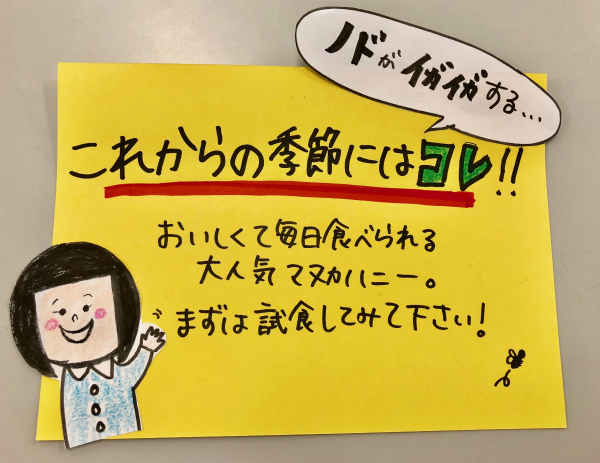 ノドがイガイガする...
これからの季節にはコレ!!
おいしくて毎日食べられる
大人気マヌカハニー。
まずは試食してみて下さい!